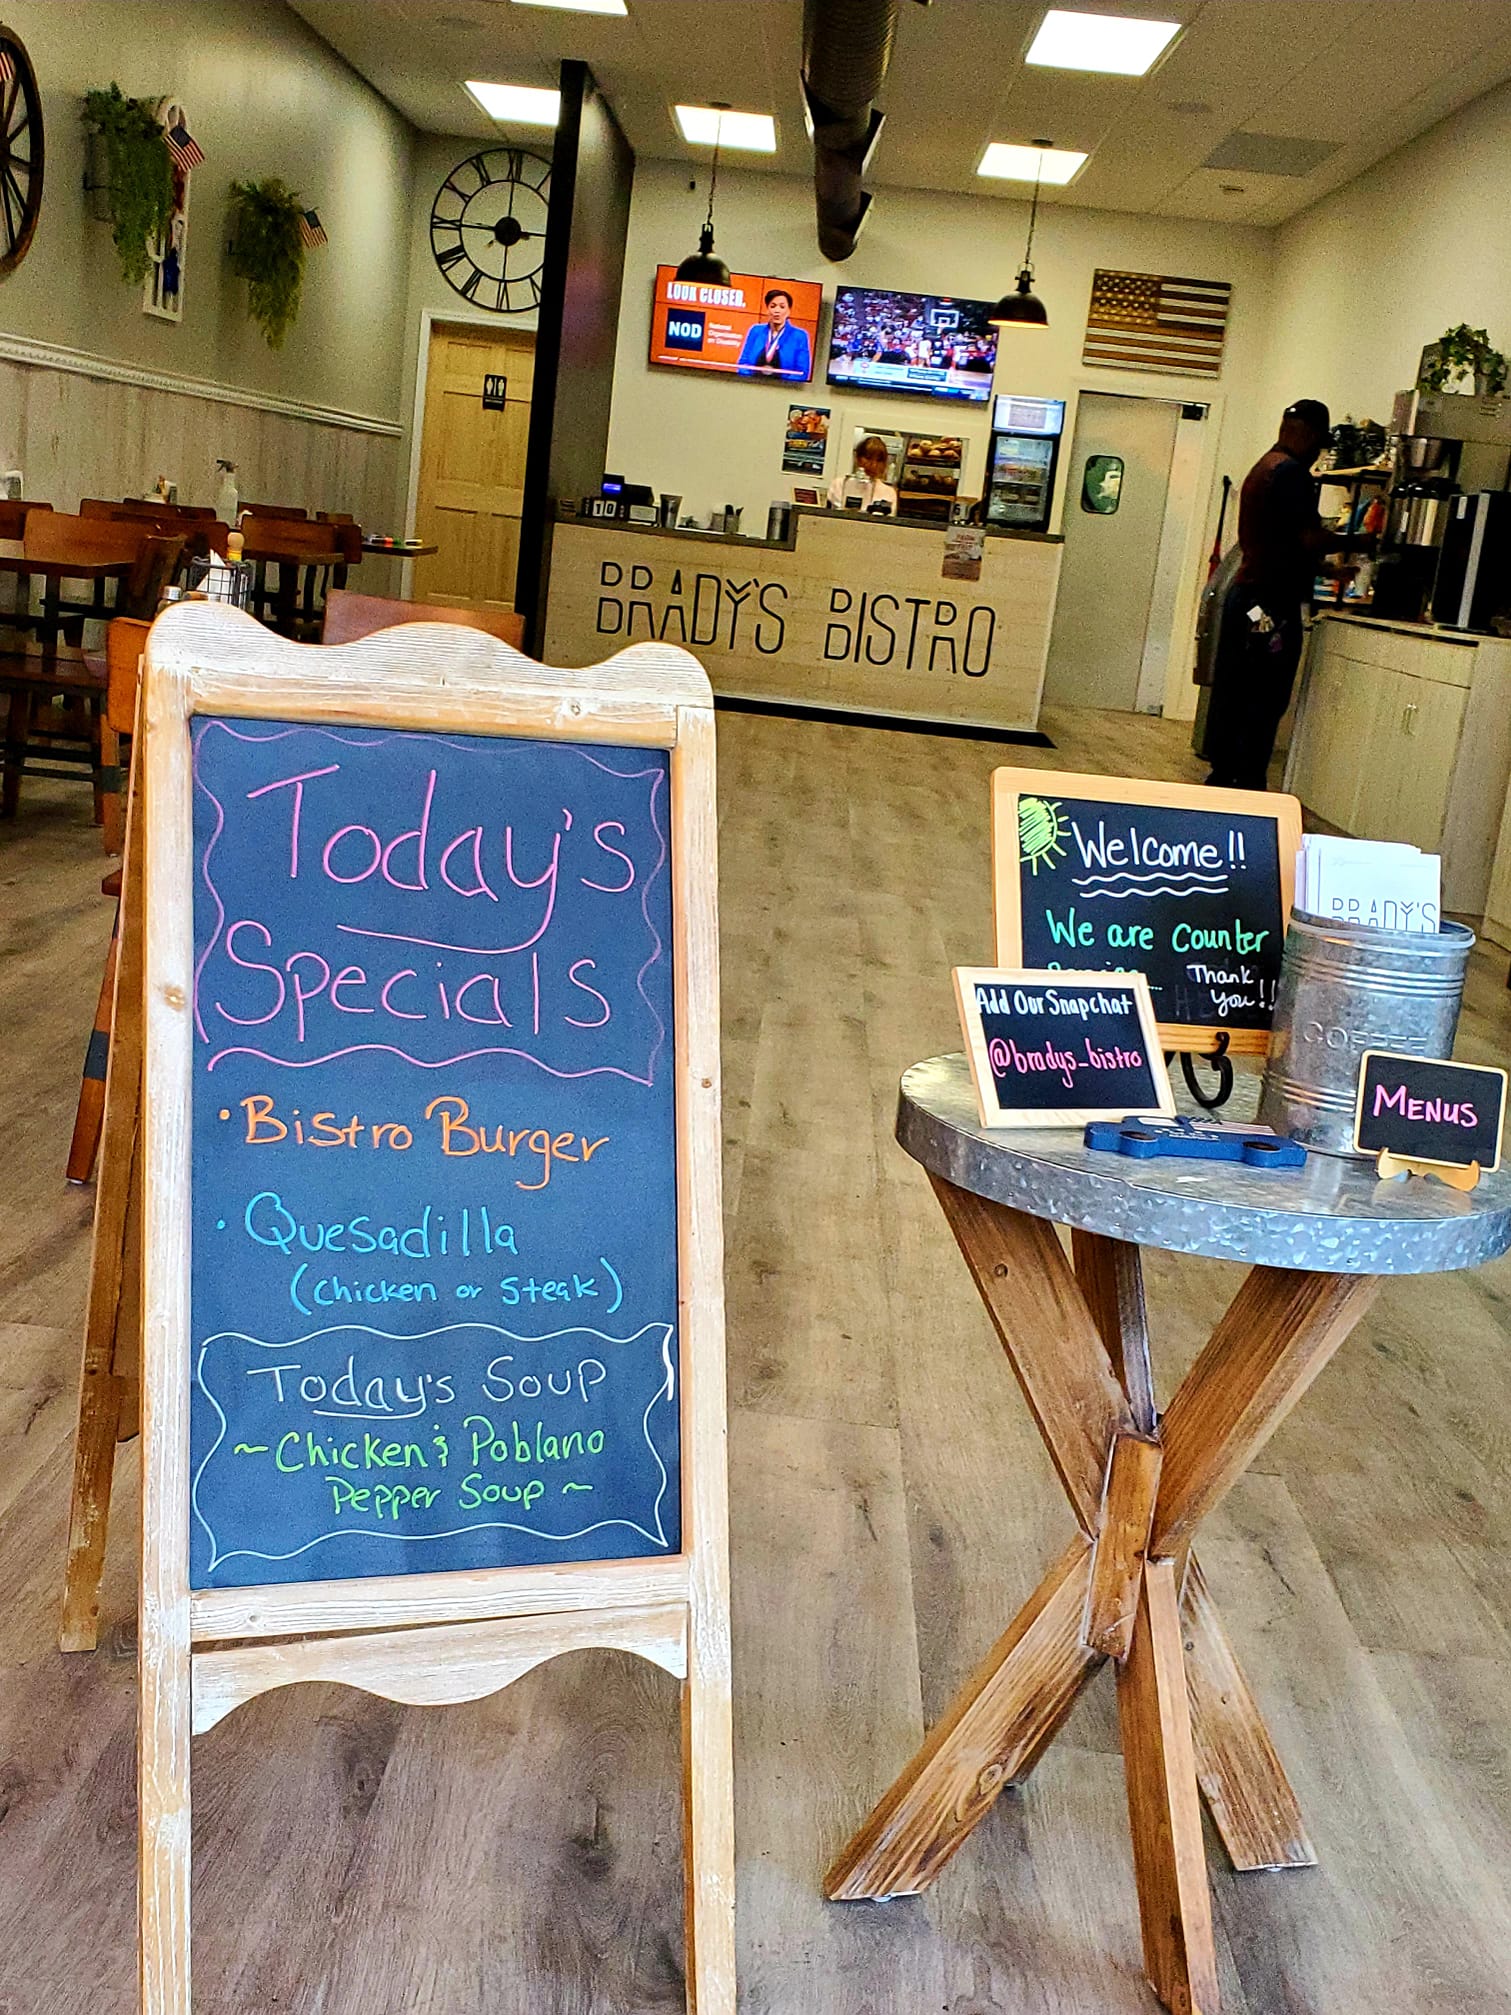 LOOK CLOSER.
NOD
National
Organization
on Disability
BRADY'S BISTRO
Today's
Specials
• Bistro Burger
• Quesadilla
(chicken or steak)
Today's Soup
~ Chicken & Poblano
Pepper Soup ~
Welcome!!
We are counter
Thank
you!!
Add Our Snapchat
@bradys_bistro
BRADY'S
COFFEE
MENUS